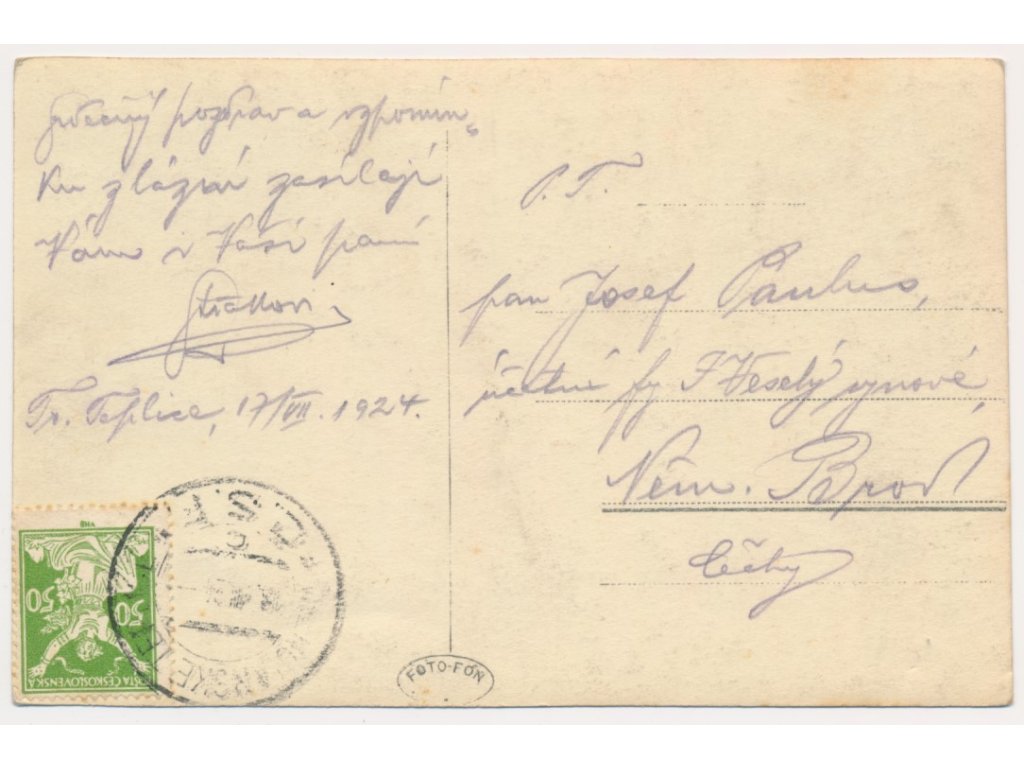 Srdečný pozdrav a vzpomín„
ku z lázní zasílají
Vám i Vaší paní
Tr. Teplice, 17/VII. 1924.
P. T.
pan Josef Paulus,
účetní fy J Veselý synové,
Něm. Brod
Čéchy
50 50
POŠTA ČESKOSLOVENSKÁ
FOTO-FON